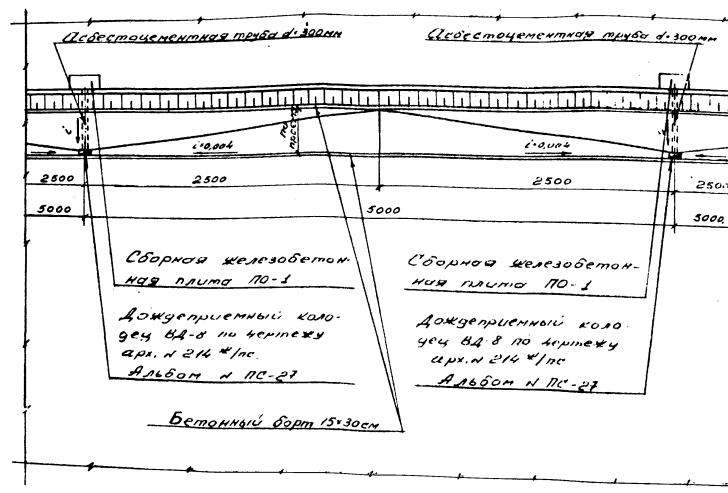 Асбестоцементная труба d=300мм
Асбестоцементная труба d=300мм
i
i
i=0,004
i=0,004
2500
2500
2500
2500
5000
5000
5000
Сборная железобетон-
ная плита ПО-1
Сборная железобетон-
ная плита ПО-1
Дождеприемный коло-
дец ВД-8 по чертежу
арх. N 214 */пс.
Альбом N ПС-27
Дождеприемный коло-
дец ВД-8 по чертежу
арх. N 214 */пс
Альбом N ПС-27
Бетонный борт 15×30см